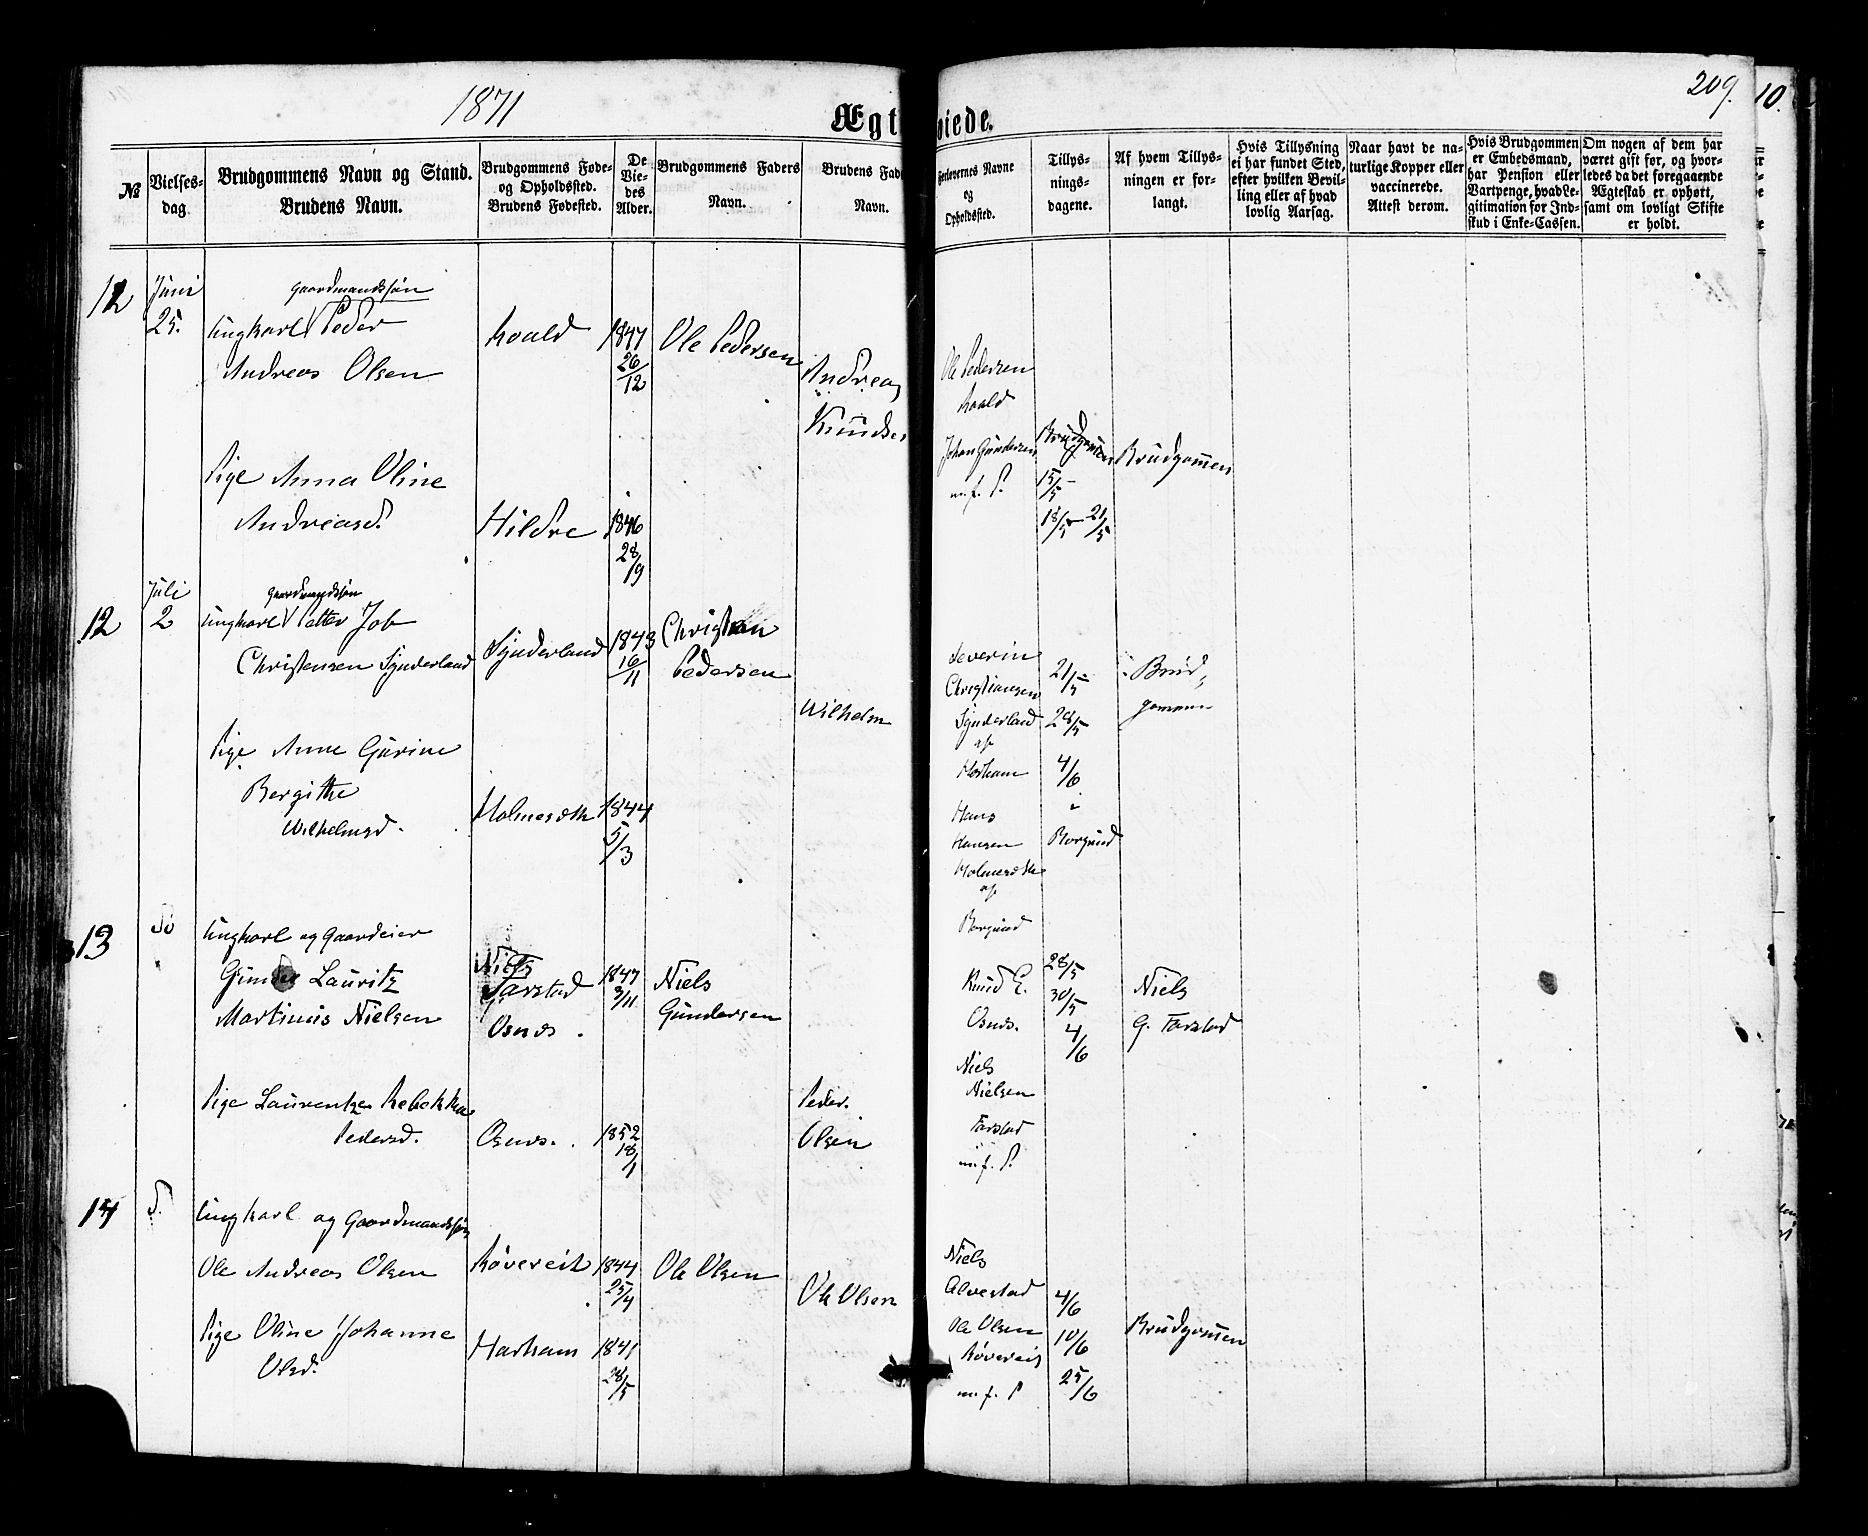 1871
209.
10.
Ægt
viede.
№
Vielses-
dag.
Brudgommens Navn og Stand.
Brudens Navn.
Brudgommens Føde-
og Opholdssted.
Brudens Fødested.
De
Vie-
des
Alder.
Brudgommens Faders
Navn.
Brudens Fad
Navn.
Forlovernes Navne
og
Opholdssted.
Tillys-
nings-
dagene.
Af hvem Tillys-
ningen er for-
langt.
Hvis Tillysning
ei har fundet Sted,
efter hvilken Bevil-
ling eller af hvad
lovlig Aarsag.
Naar havt de na-
turlige Kopper eller
vaccinerede.
Attest derom.
Hvis Brudgommen
er Embedsmand,
har Pension eller
Vartpenge, hvad Le-
gitimation for Ind-
skud i Enke-Cassen.
Om nogen af dem har
været gift før, og hvor-
ledes da det foregaaende
Ægteskab er ophørt,
samt om lovligt Skifte
er holdt.
12
Juni
25.
Gaardmandssøn
Ungkarl Peder
Andreas Olsen
Roald
1847
26/12
Ole Pedersen
Andreas
Knudse
Pige Anna Oline
Andreasd.
Hildre
1846
28/9
Ole Pedersen
Roald
Johan Gundersen
m. f. P.
Brudgommen
15/5
18/5 21/5
Brudgommen
12
Juli
2
Gaardmandssøn
Ungkarl Petter Job
Christensen Synderland
Synderland
1843
16/11
Christian
Pedersen
Wilhelm
Pige Anne Gurine
Bergithe
Wilhelmsd.
Holmesæth
1844
5/3
Severin
Christiansen
Synderland
af
Harham
Hans
Hansen
Holmesæth
af
Borgund
21/5
28/5
4/6
Borgund
Brud
gommen
13
Do
Ungkarl og Gaardeier
Gunder Lauritz
Martinus Nielsen
Niels
Farstad
Osnes.
1847
3/11
Niels
Gundersen
Pige Laurentze Rebekka
Pedersd.
Osnes.
1852
18/1
Peder
Olsen
Knud E.
Osnes.
Niels
Nielsen
Farstad
m. f. P.
28/5
30/5
4/6
Niels
G. Farstad
14
D.
Ungkarl og Gaardmandssøn
Ole Andreas Olsen
Røvereit
1844
25/4
Ole Olsen
Ole Olsen
Pige Oline Johanne
Olsd.
Harham
1841
28/5
Niels
Alvestad
Ole Olsen
Røvereit
m. f. P
4/6
10/6
25/6
Brudgommen